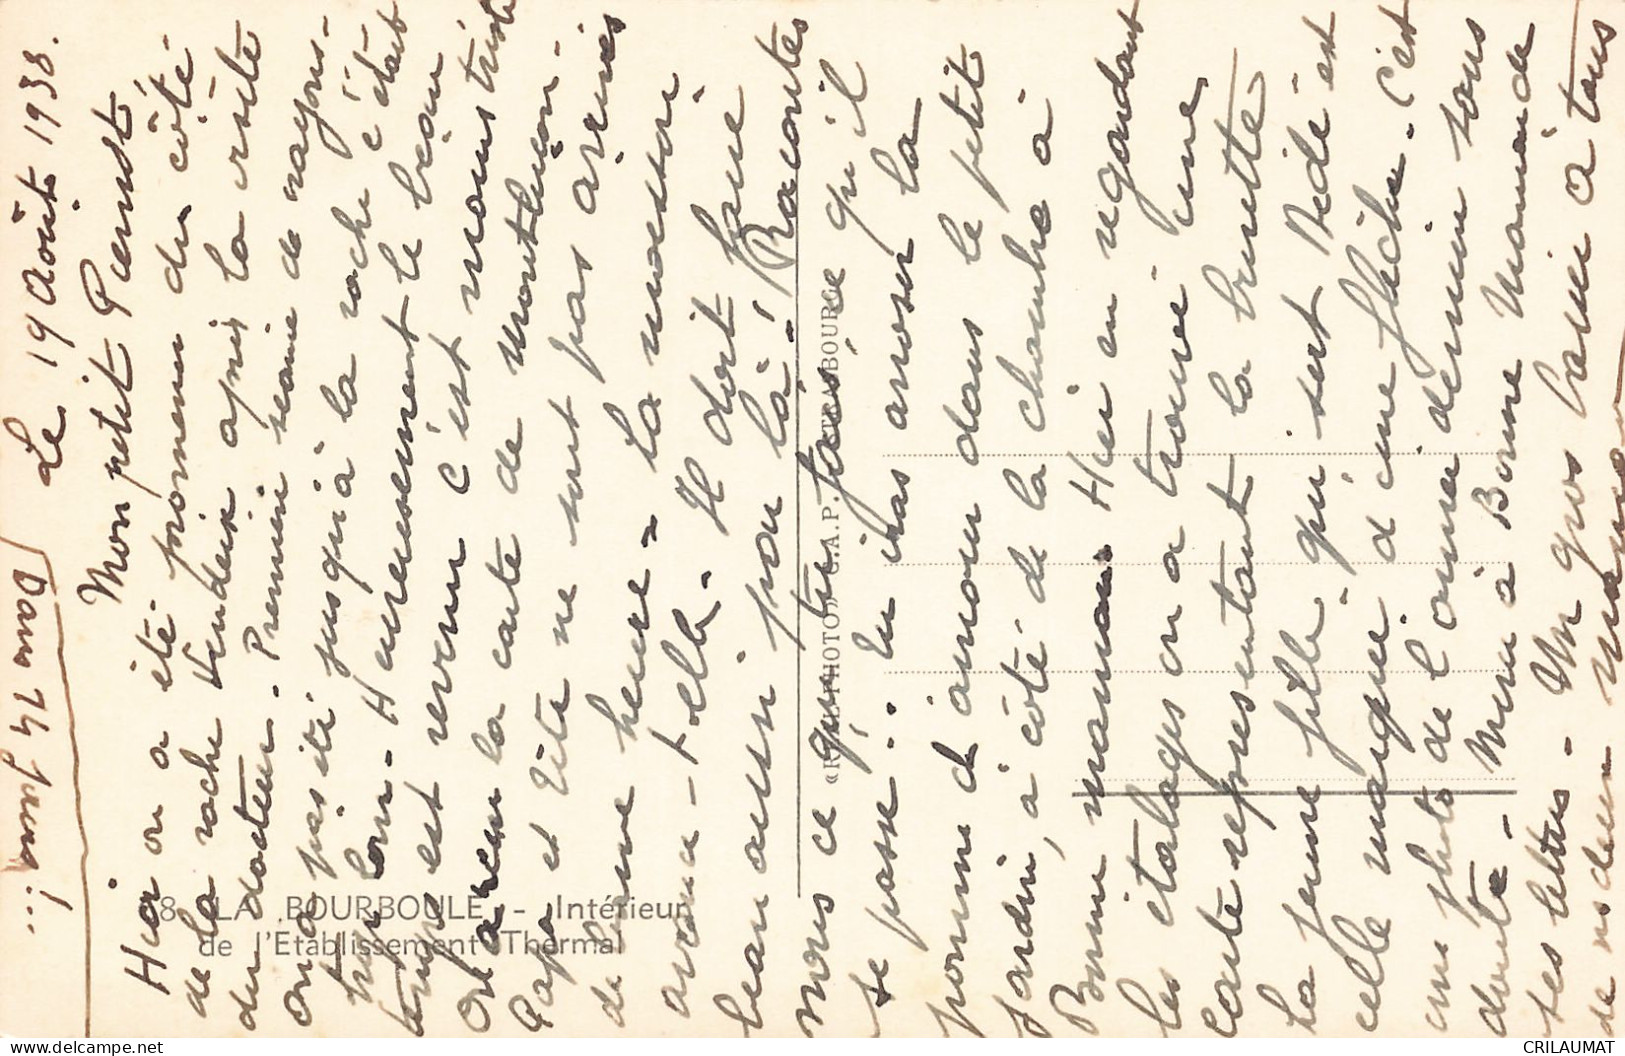 Le 19 Août 1938.
Dans 74 jours!...
Mon petit Pierrot,
Hier on a été promener du côté
de la roche Vendeix après la visite
du docteur. Première séance de rayons.
On a pas été jusqu'à la roche c'était
trop loin. Heureusement le beau
temps est revenu c'est moins triste
On a eu la carte de Montluçon.
Papa et Tété ne sont pas arrivés
de bonne heure. La moisson
avance-t-elle. Il doit faire
beau aussi pour là! Racontes
nous ce que tu fais, ce qu'il
se passe. Tu iras arroser la
pomme d'amour dans le petit
jardin, à côté de la chambre à
Bonne maman. Hier en regardant
les étalages on a trouvé une
carte représentant la buvette
La jeune fille qui sert Dédé est
celle marquée d'une flèche. C'est
une photo de l'année dernière sans
doute. Merci à Bonne Maman de
ses lettres. Un gros baiser à tous
de nous deux
8 LA BOURBOULE - Intérieur
de l'Etablissement Thermal
«REAL-PHOTO» C.A.P. STRASBOURG
CRILAUMAT